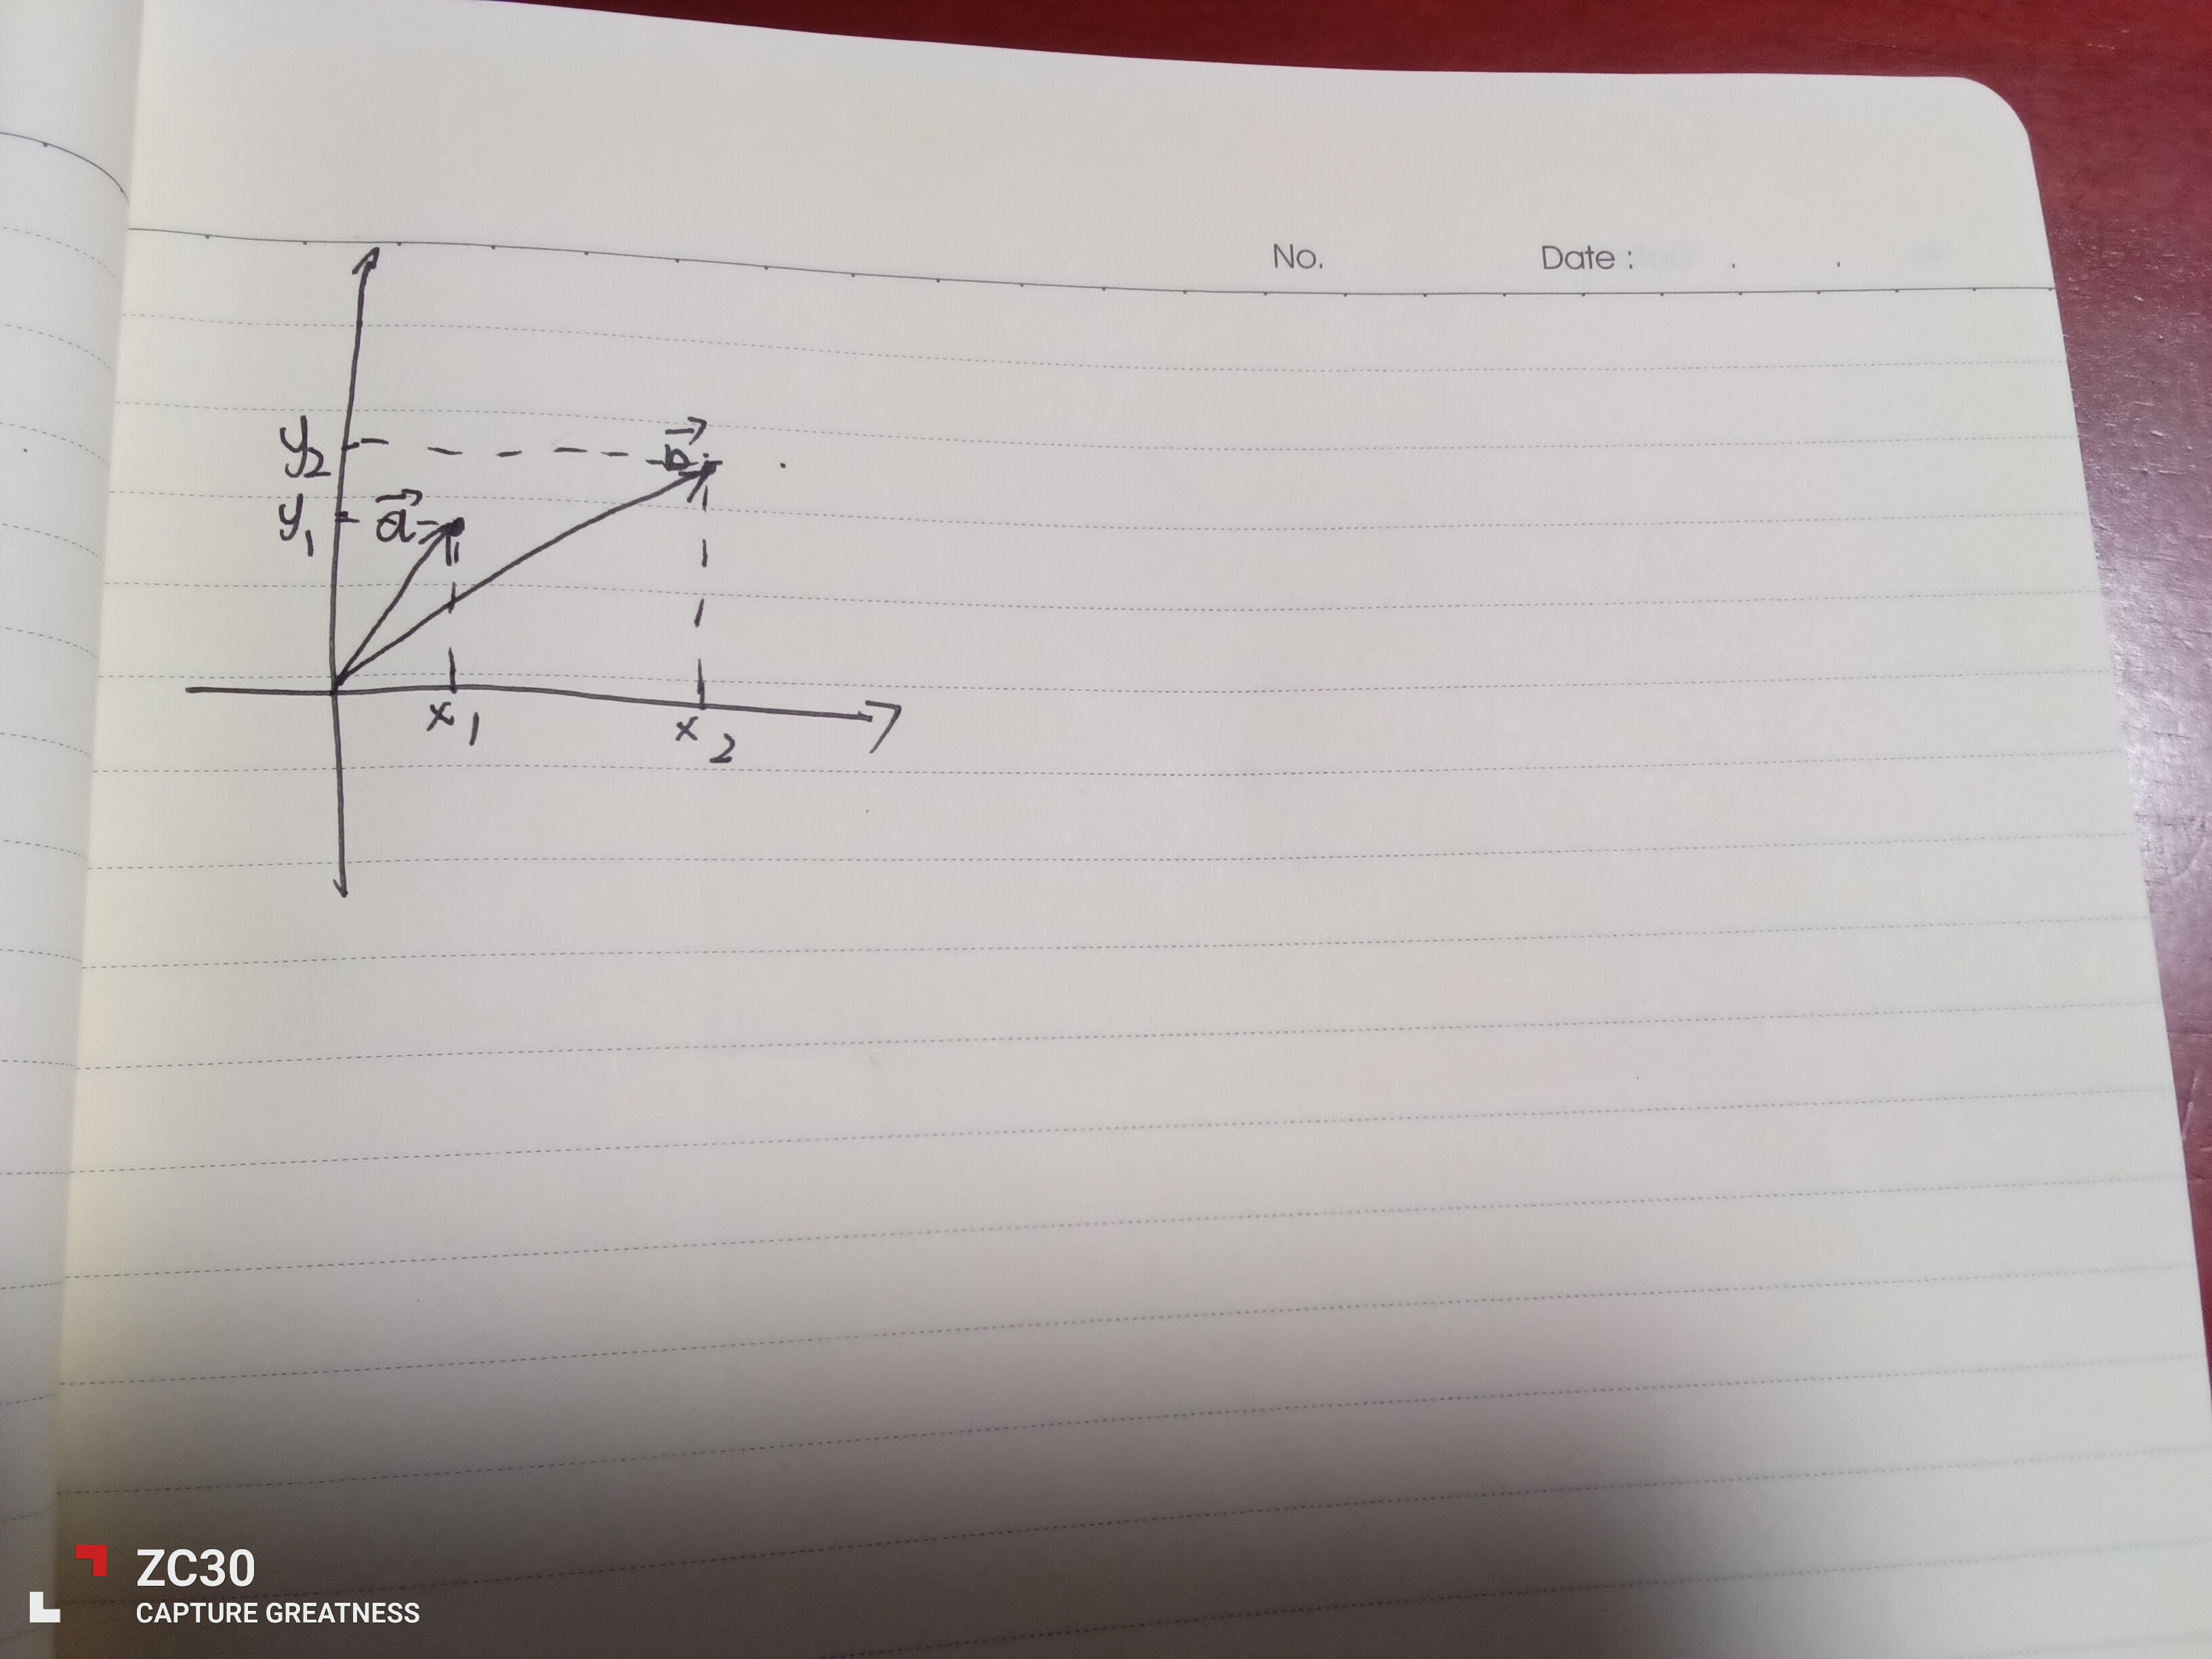 No. Date : . .
y₂ b⃗
y₁ a⃗
x₁ x₂
ZC30
CAPTURE GREATNESS